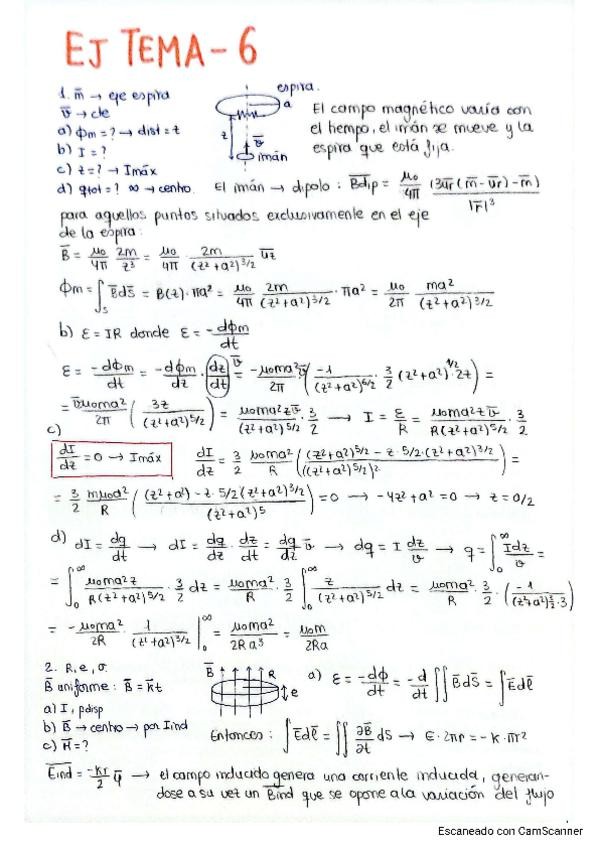 EJ TEMA - 6
1. m̄ → eje espira
v̄ → cte
a) ɸm = ? → dist = z
b) I = ?
c) z = ? → Imáx
d) qtot = ? ∞ → centro.
espira.
a
z
v̄
imán
El campo magnético varía con
el tiempo, el imán se mueve y la
espira que está fija.
El imán → dipolo : B̄dip = μ0/4π (3ūr(m̄·ūr) - m̄)/|r̄|³
para aquellos puntos situados exclusivamente en el eje
de la espira:
B̄ = μ0/4π 2m/z³ = μ0/4π · 2m/(z²+a²)^3/2 ūz
ɸm = ∫s B̄dS̄ = B(z)·πa² = μ0/4π 2m/(z²+a²)^3/2 · πa² = μ0/2π ma²/(z²+a²)^3/2
b) ε = IR donde ε = -dɸm/dt
ε = -dɸm/dt = -dɸm/dz · dz/dt v̄ = -μ0ma²v̄/2π (-1/(z²+a²)^6/2 · 3/2 (z²+a²)^1/2 · 2z) =
= v̄μ0ma²/2π (3z/(z²+a²)^5/2) = μ0ma²zv̄/(z²+a²)^5/2 · 3/2 → I = ε/R = μ0ma²zv̄/R(z²+a²)^5/2 · 3/2
c)
dI/dz = 0 → Imáx
dI/dz = 3/2 μ0ma²/R ((z²+a²)^5/2 - z·5/2·(z²+a²)^3/2/((z²+a²)^5/2)²) =
= 3/2 mμ0a²/R ((z²+a²) - z·5/2(z²+a²)^3/2/(z²+a²)^5) = 0 → -4z²+a² = 0 → z = a/2
d) dI = dq/dt → dI = dq/dz · dz/dt = dq/dz v̄ → dq = I dz/v → q = ∫0^∞ Idz/v =
= ∫0^∞ μ0ma²z/R(z²+a²)^5/2 · 3/2 dz = μ0ma²/R · 3/2 ∫0^∞ z/(z²+a²)^5/2 dz = μ0ma²/R · 3/2 · (-1/(z²+a²)^3/2·3)
= -μ0ma²/2R · 1/(z²+a²)^3/2 |0^∞ = μ0ma²/2Ra³ = μ0m/2Ra
2. R, e, σ.
B̄ uniforme: B̄ = k̄t
a) I, pdisp
b) B̄ → centro → por Iind
c) H̄ = ?
B̄
R
e
a) ε = -dɸ/dt = -d/dt ∬B̄dS̄ = ∫Ēdl̄
Entonces : ∫Ēdl̄ = ∬ ∂B̄/∂t dS → E·2πr = -k·πr²
Ēind = -kr/2 ū → el campo inducido genera una corriente inducida, generan-
dose a su vez un B̄ind que se opone a la variación del flujo
Escaneado con CamScanner